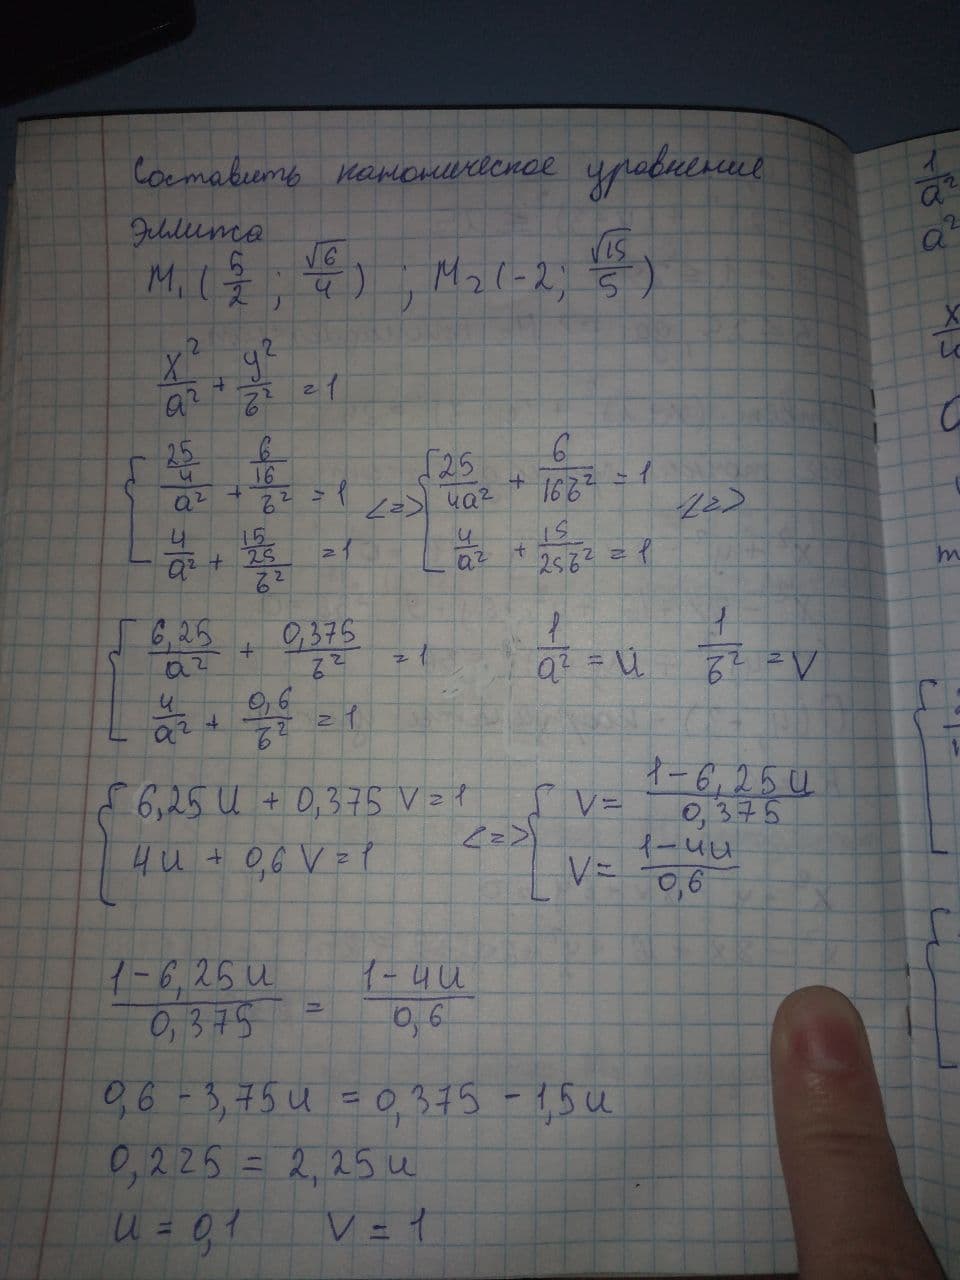 Составить каноническое уравнение
эллипса
M₁ (5/2 ; √6/4) ; M₂ (-2; √15/5)
x²/a² + y²/b² = 1
{ (25/4)/a² + (6/16)/b² = 1 <=> { 25/4a² + 6/16b² = 1 <=>
4/a² + (15/25)/b² = 1 4/a² + 15/25b² = 1
{ 6,25/a² + 0,375/b² = 1 1/a² = U 1/b² = V
4/a² + 0,6/b² = 1
{ 6,25U + 0,375V = 1 <=> { V = (1-6,25U)/0,375
4U + 0,6V = 1 V = (1-4U)/0,6
(1-6,25U)/0,375 = (1-4U)/0,6
0,6 - 3,75U = 0,375 - 1,5U
0,225 = 2,25U
U = 0,1 V = 1
1/a²
a²